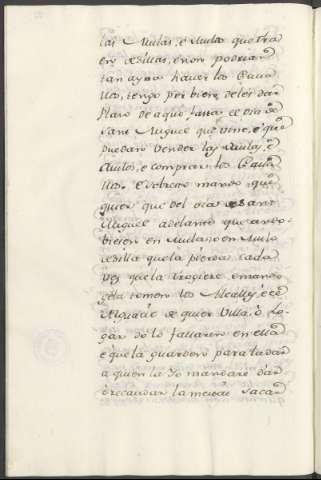 las Mulas, è Mulos que tra
en de sillas, è non podrian
tan ayna haver los Cava
llos, tengo por bien de les dar
Plazo de aqui fasta el dia de
Sant Miguel que viene, è que
puedan vender las Mulas, è
Mulos, è comprar los Cava
llos. E otrosi mando que
quier que del dia de Sant
Miguel adelante que andu
bieren en Mula, o en Mulo
de silla que la pierda cada
vez que la trogiere, è mando
gela tomen los Alcalles, è el
Alguacil de quier Villa, ò Lo
gar do lo fallaren en ella
è que la guarden para la dar
a quien la Yo mandare dar
è recaudar la meitad sacan